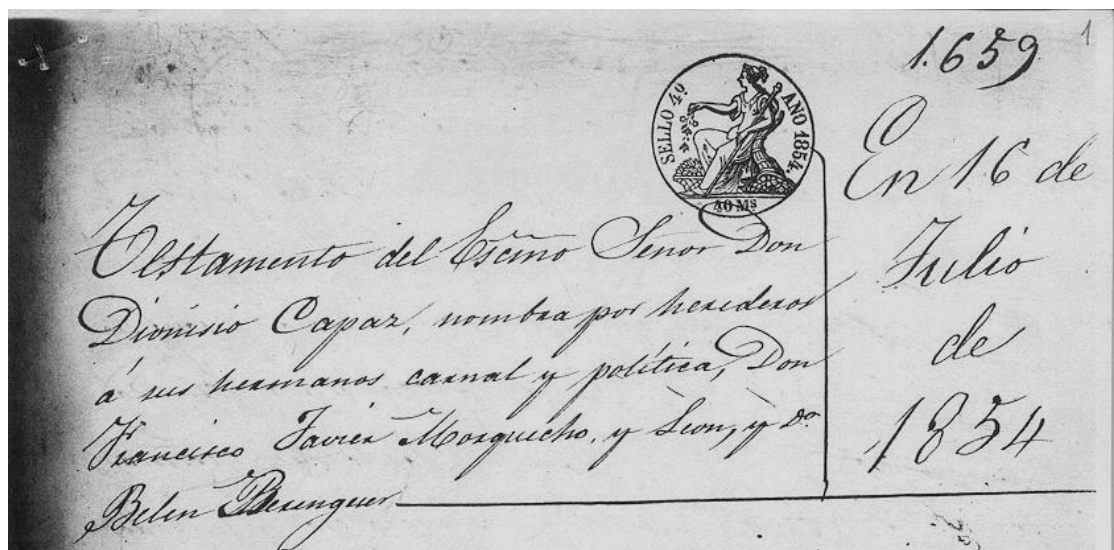 1.659
1
SELLO 4º AÑO 1854.
40 Ms
En 16 de
Julio
de
1854
Testamento del Escmo Señor Don
Dionisio Capaz, nombra por herederos
á sus hermanos carnal y política, Don
Francisco Javier Morquecho, y Leon, y Dª
Belen Berenguer